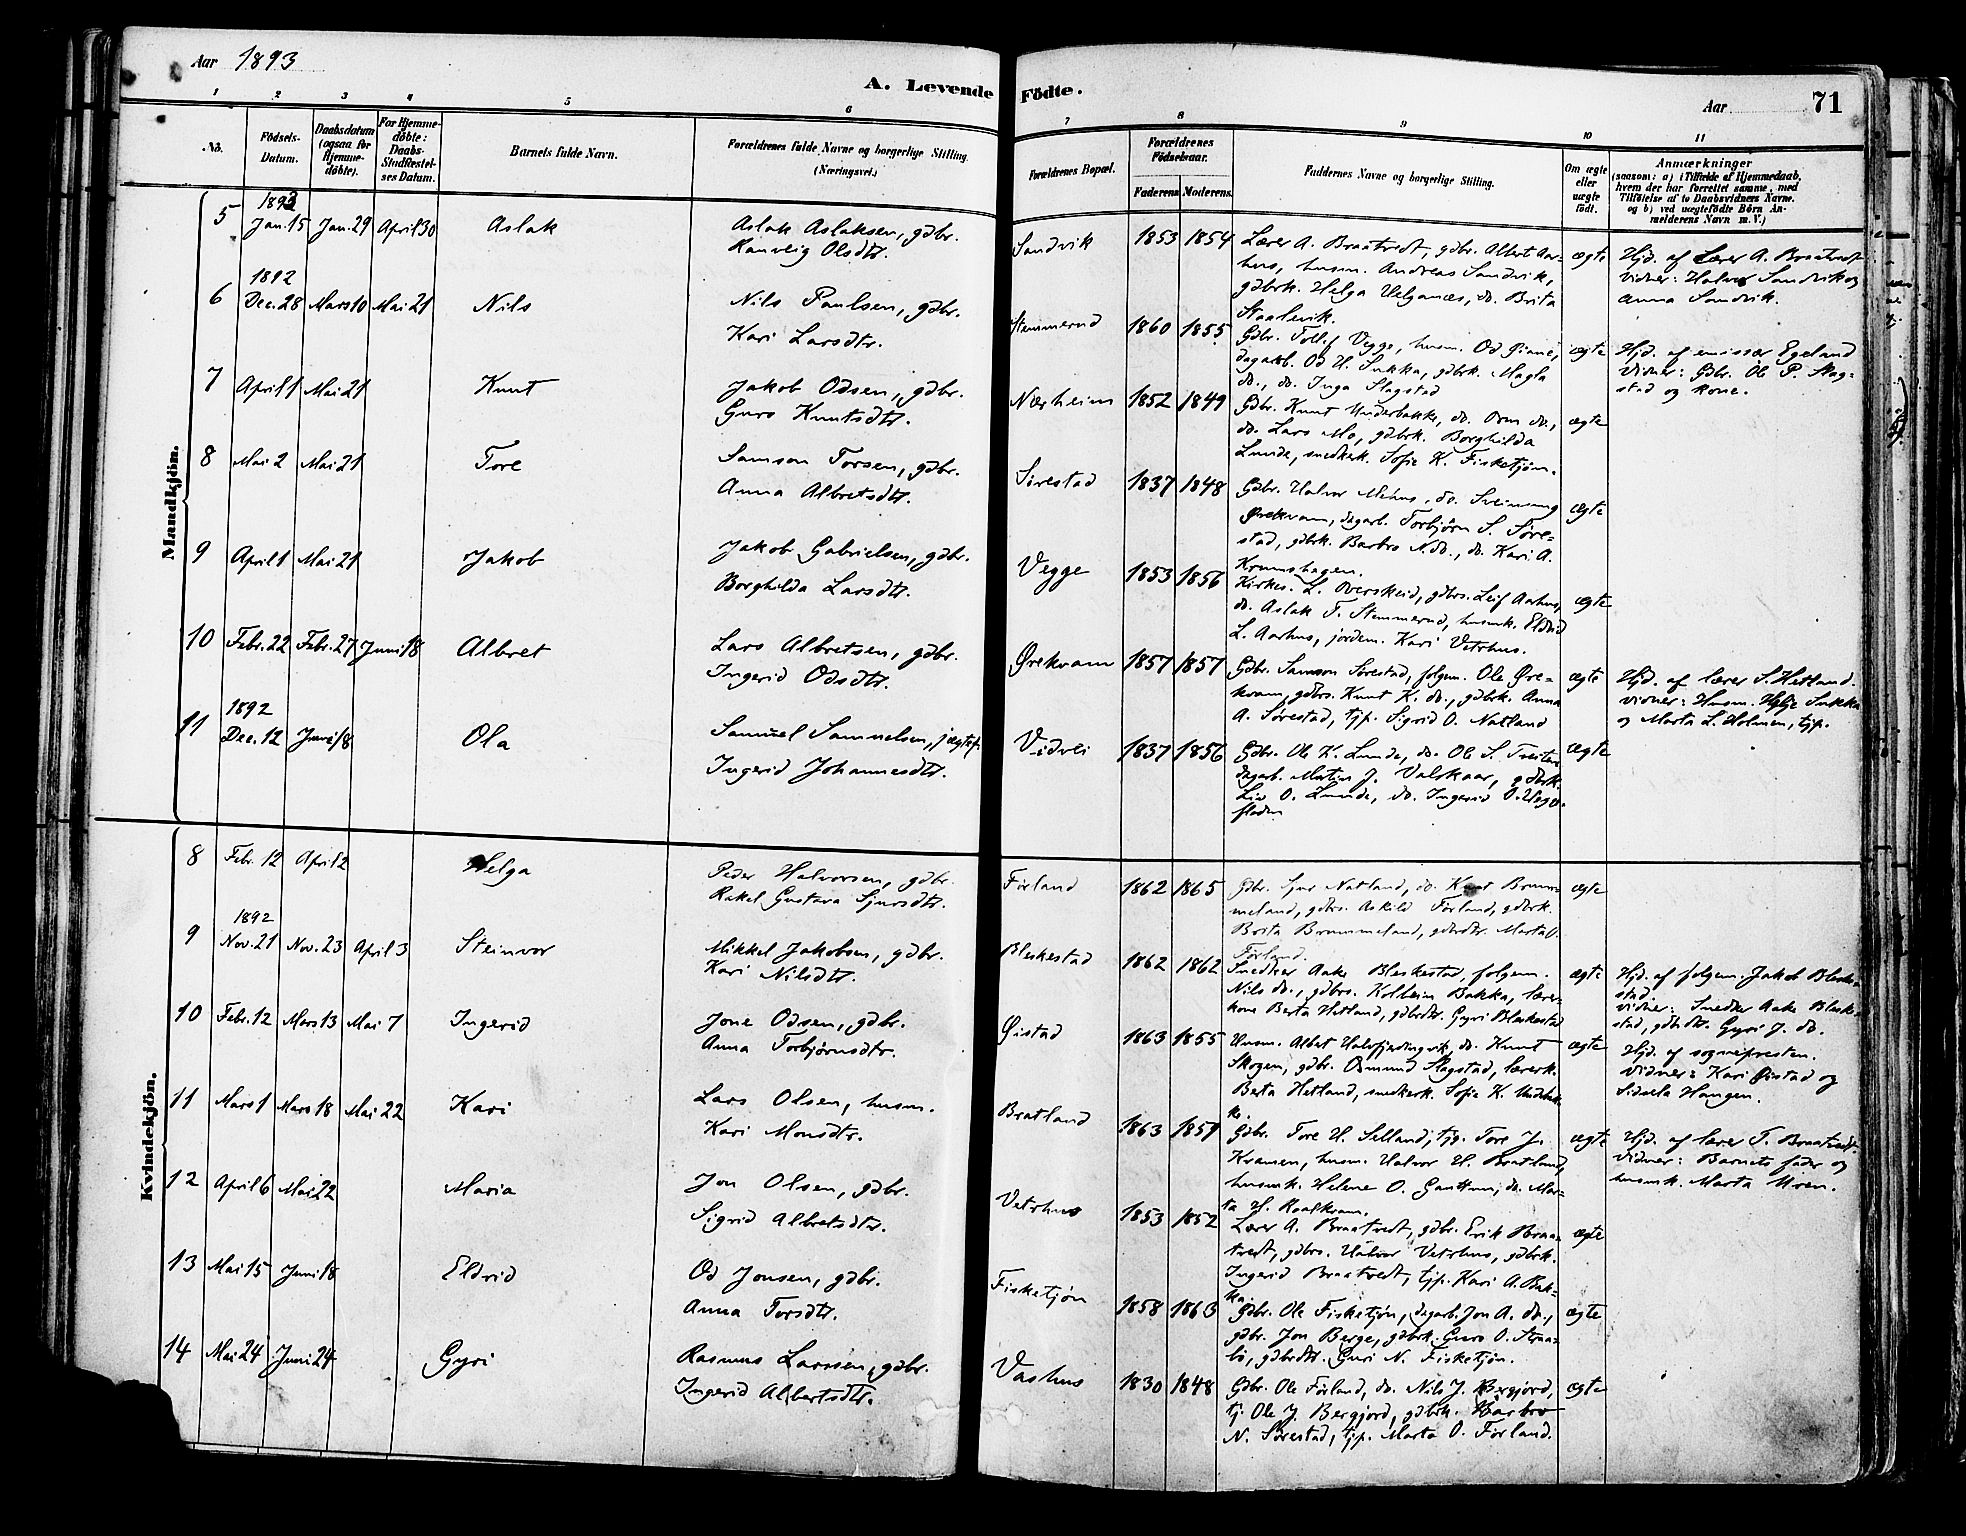 Aar 1893
A. Levende Födte.
Aar 71
1 2 3 4 5 6 7 8 9 10 11
No.
Födsels-Datum.
Daabsdatum (ogsaa for Hjemme-döbte).
For Hjemme-döbte: Daabs-Stadfæstel-ses Datum.
Barnets fulde Navn.
Forældrenes fulde Navne og borgerlige Stilling. (Næringsvei.)
Forældrenes Bopæl.
Forældrenes Födselsaar.
Faderens. Moderens.
Faddernes Navne og borgerlige Stilling.
Om ægte eller uægte født.
Anmærkninger
(saasom: a) i Tilfælde af Hjemmedaab,
hvem der har forrettet samme, med
Tilföielse af to Daabsvidners Navne.
og b) ved uægtefödte Börn An-
melderens Navn m. V.)
Mandkjön.
5 1893 Jan. 15 Jan. 29 April 30 Aslak
Aslak Aslaksen, gdbr.
Ranveig Olsdtr.
Sandvik 1853 1854
Lærer A. Braatvedt, gdbr. Albert Aar-
hus, husm. Andreas Sandvik,
gdbrk. Helga Helganæs, do. Brita
Staalevik.
ægte
Hjd. af Lærer A. Braatvedt
Vidner: Halvor Sandvik og
Anna Sandvik.
6 1892 Dec. 28 Mars 10 Mai 21 Nils
Nils Paulsen, gdbr.
Kari Larsdtr.
Stemmerud 1860 1855
Gdbr. Tollef Vegge, husm. Od
dagarb. Od H. Sukka, gdbrk. Magla
do., do. Inga Slagstad
ægte
Hjd. af emissær Egeland
Vidner: Gdbr. Ole P. Slag-
stad og kone.
7 April 1 Mai 21 Knut
Jakob Odsen, gdbr.
Guro Knutsdtr.
Nærheim 1852 1849
Gdbr. Knut Underbakke, do. Orm do.,
do. Lars Mo, gdbrk. Borghilda
Lunde, snedkerk. Sofie K. Fisketjøn.
ægte
8 Mai 2 Mai 21 Tore
Samson Torsen, gdbr.
Anna Albretsdtr.
Sørestad 1837 1848
Gdbr. Halvor Mehus, do. Sveinung
Ørekvam, dagarb. Torbjørn S. Søre-
stad, gdbrk. Barbro N. do., do. Kari A.
Krunshagen.
ægte
9 April 1 Mai 21 Jakob
Jakob Gabrielsen, gdbr.
Borghilda Larsdtr.
Vegge 1853 1856
Kirkes. L. Overskeid, gdbrs. Leif Aarhus,
do. Aslak T. Stemmerud, husmk. Eldrid
L. Aarhus, jordem. Kari Vetrhus.
ægte
10 Febr. 22 Febr. 27 Juni 18 Albret
Lars Albretsen, gdbr.
Ingerid Odsdtr.
Ørekvam 1857 1857
Gdbr. Samson Sørestad, folgem. Ole Øre-
kvam, gdbrs. Knut K. do., gdbrk. Anna
A. Sørestad, tjp. Sigrid O. Natland
ægte
Hjd. af lærer S. Hetland.
Vidner: Husm. Helje Sukka
og Marta L. Holmen, tjp.
11 1892 Dec. 12 Juni 18 Ola
Samuel Samuelsen, jægtef.
Ingerid Johannesdtr.
Vidvei 1837 1856
Gdbr. Ole K. Lunde, do. Ole S.
dagarb. Martin J. Valskaar, gdbrk.
Liv O. Lunde, do. Ingerid O.
ægte
Kvindekjön.
8 Febr. 12 April 2 Helga
Peder Halvorsen, gdbr.
Rakel Gustava Sjursdtr.
Førland 1862 1865
Gdbr. Sjur Natland, do. Knut Brum-
meland, gdbrs. Askild Førland, gdbrk.
Brita Brummeland, gdbrdtr. Marta O.
Førland.
ægte
9 1892 Nov. 21 Nov. 23 April 3 Steinvor
Mikkel Jakobsen, gdbr.
Kari Nilsdtr.
Bleskestad 1862 1862
Snedker Aake Bleskestad, folgem.
Nils do., gdbrs. Kolbein Bakka, lærer-
kone Berta Hetland, gdbrdtr. Gyri Bleskestad
ægte
Hjd. af folgem. Jakob Bleske-
stad.
Vidner: Snedker Aake Bleske-
stad, gdbrdtr. Gyri J. do.
10 Febr. 12 Mars 13 Mai 7 Ingerid
Jone Odsen, gdbr.
Anna Torbjørnsdtr.
Øistad 1863 1855
Husm. Albert do. Knut
Skogen, gdbr. Osmund Slagstad, lærerk.
Berta Hetland, snedkerk. Sofie K. Underbak-
ke.
ægte
Hjd. af sognepresten.
Vidner: Kari Øistad og
Sidsela Haugen.
11 Mars 1 Mars 18 Mai 22 Kari
Lars Olsen, husm.
Kari Monsdtr.
Bratland 1863 1859
Gdbr. Tore H. Selland, tjg. Tore J.
Kvamen, husm. Halvor H. Bratland,
husmk. Helene O. do. Mar-
ta H. Roalkvam.
ægte
Hjd. af lærer T. Braatvedt.
Vidner: Barnets fader og
husmk. Marta Moen.
12 April 6 Mai 22 Maria
Jon Olsen, gdbr.
Sigrid Albretsdtr.
Vetrhus 1853 1852
Lærer A. Braatvedt, gdbr. Erik Braa-
tvedt, gdbrs. Halvor Vetrhus, gdbrk.
Ingerid Braatvedt, tjp. Kari A. Bak-
ka.
ægte
13 Mai 15 Juni 18 Eldrid
Od Jonsen, gdbr.
Anna Torsdtr.
Fisketjøn 1858 1863
Gdbr. Ole Fisketjøn, dagarb. Jon A. do.,
gdbr. Jon Berge, gdbrk. Guro O. Straa-
bø, gdbrdtr. Guri N. Fisketjøn.
ægte
14 Mai 24 Juni 24 Gyri
Rasmus Larssen, gdbr.
Ingerid Albertsdtr.
Vashus 1830 1848
Gdbr. Ole Førland, do. Nils J. Bergjord,
tj. Ole J. Bergjord, gdbrk. Barbro
N. Sørestad, tjp. Marta O. Førland.
ægte